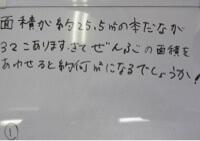 面積が約25.5㎡の本だなが
32こあります。さて ぜんぶの面積を
あわせると約何㎡になるでしょうか!
①